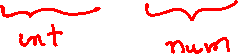 int num